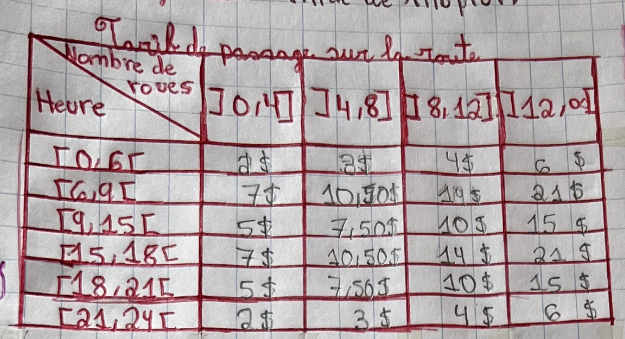 Tarif de passage sur la route
Nombre de
roues
Heure ]0,4] ]4,8] ]8,12] ]12,∞[
[0,6[ 2$ 3$ 4$ 6 $
[6,9[ 7$ 10,50$ 14$ 21$
[9,15[ 5$ 7,50$ 10$ 15 $
[15,18[ 7$ 10,50$ 14 $ 21 $
[18,21[ 5$ 7,50$ 10$ 15 $
[21,24[ 2$ 3$ 4$ 6 $